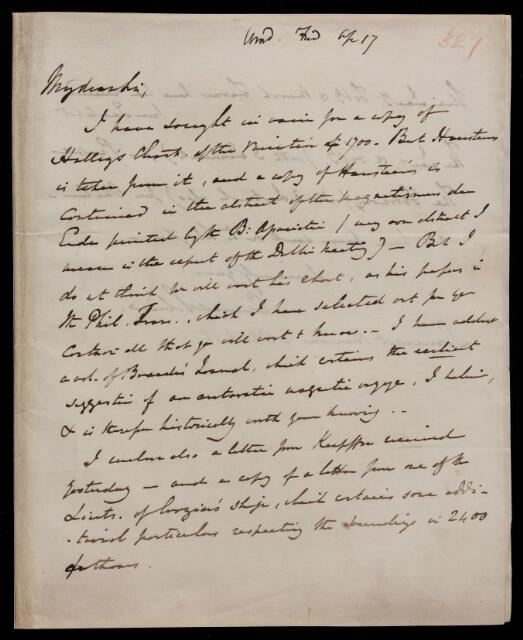 Wood. Fred Ap 17
327
My dear Sir,
I have sought in vain for a copy of
Halley's Chart of the Variation of 1700. But Hansteen's
is taken from it, and a copy of Hansteen's is
contained in the abstract of the Magnetismus der
Erde printed by the B. Association (my own abstract I
mean in the report of the Dublin meeting) - But I
do not think you will want his Chart, as his papers in
the Phil. Trans., which I have selected out for you
contain all that you will want to know. - I have added
a vol. of Journal, which contains the earliest
suggestion of an antarctic magnetic voyage, I believe,
& is therefore historically worth your knowing. -
I enclose also a letter from Kupffer received
yesterday - and a copy of a letter from one of the
Lieuts. of Crozier's ship, which contains some addi-
-tional particulars respecting the soundings in 2400
fathoms.